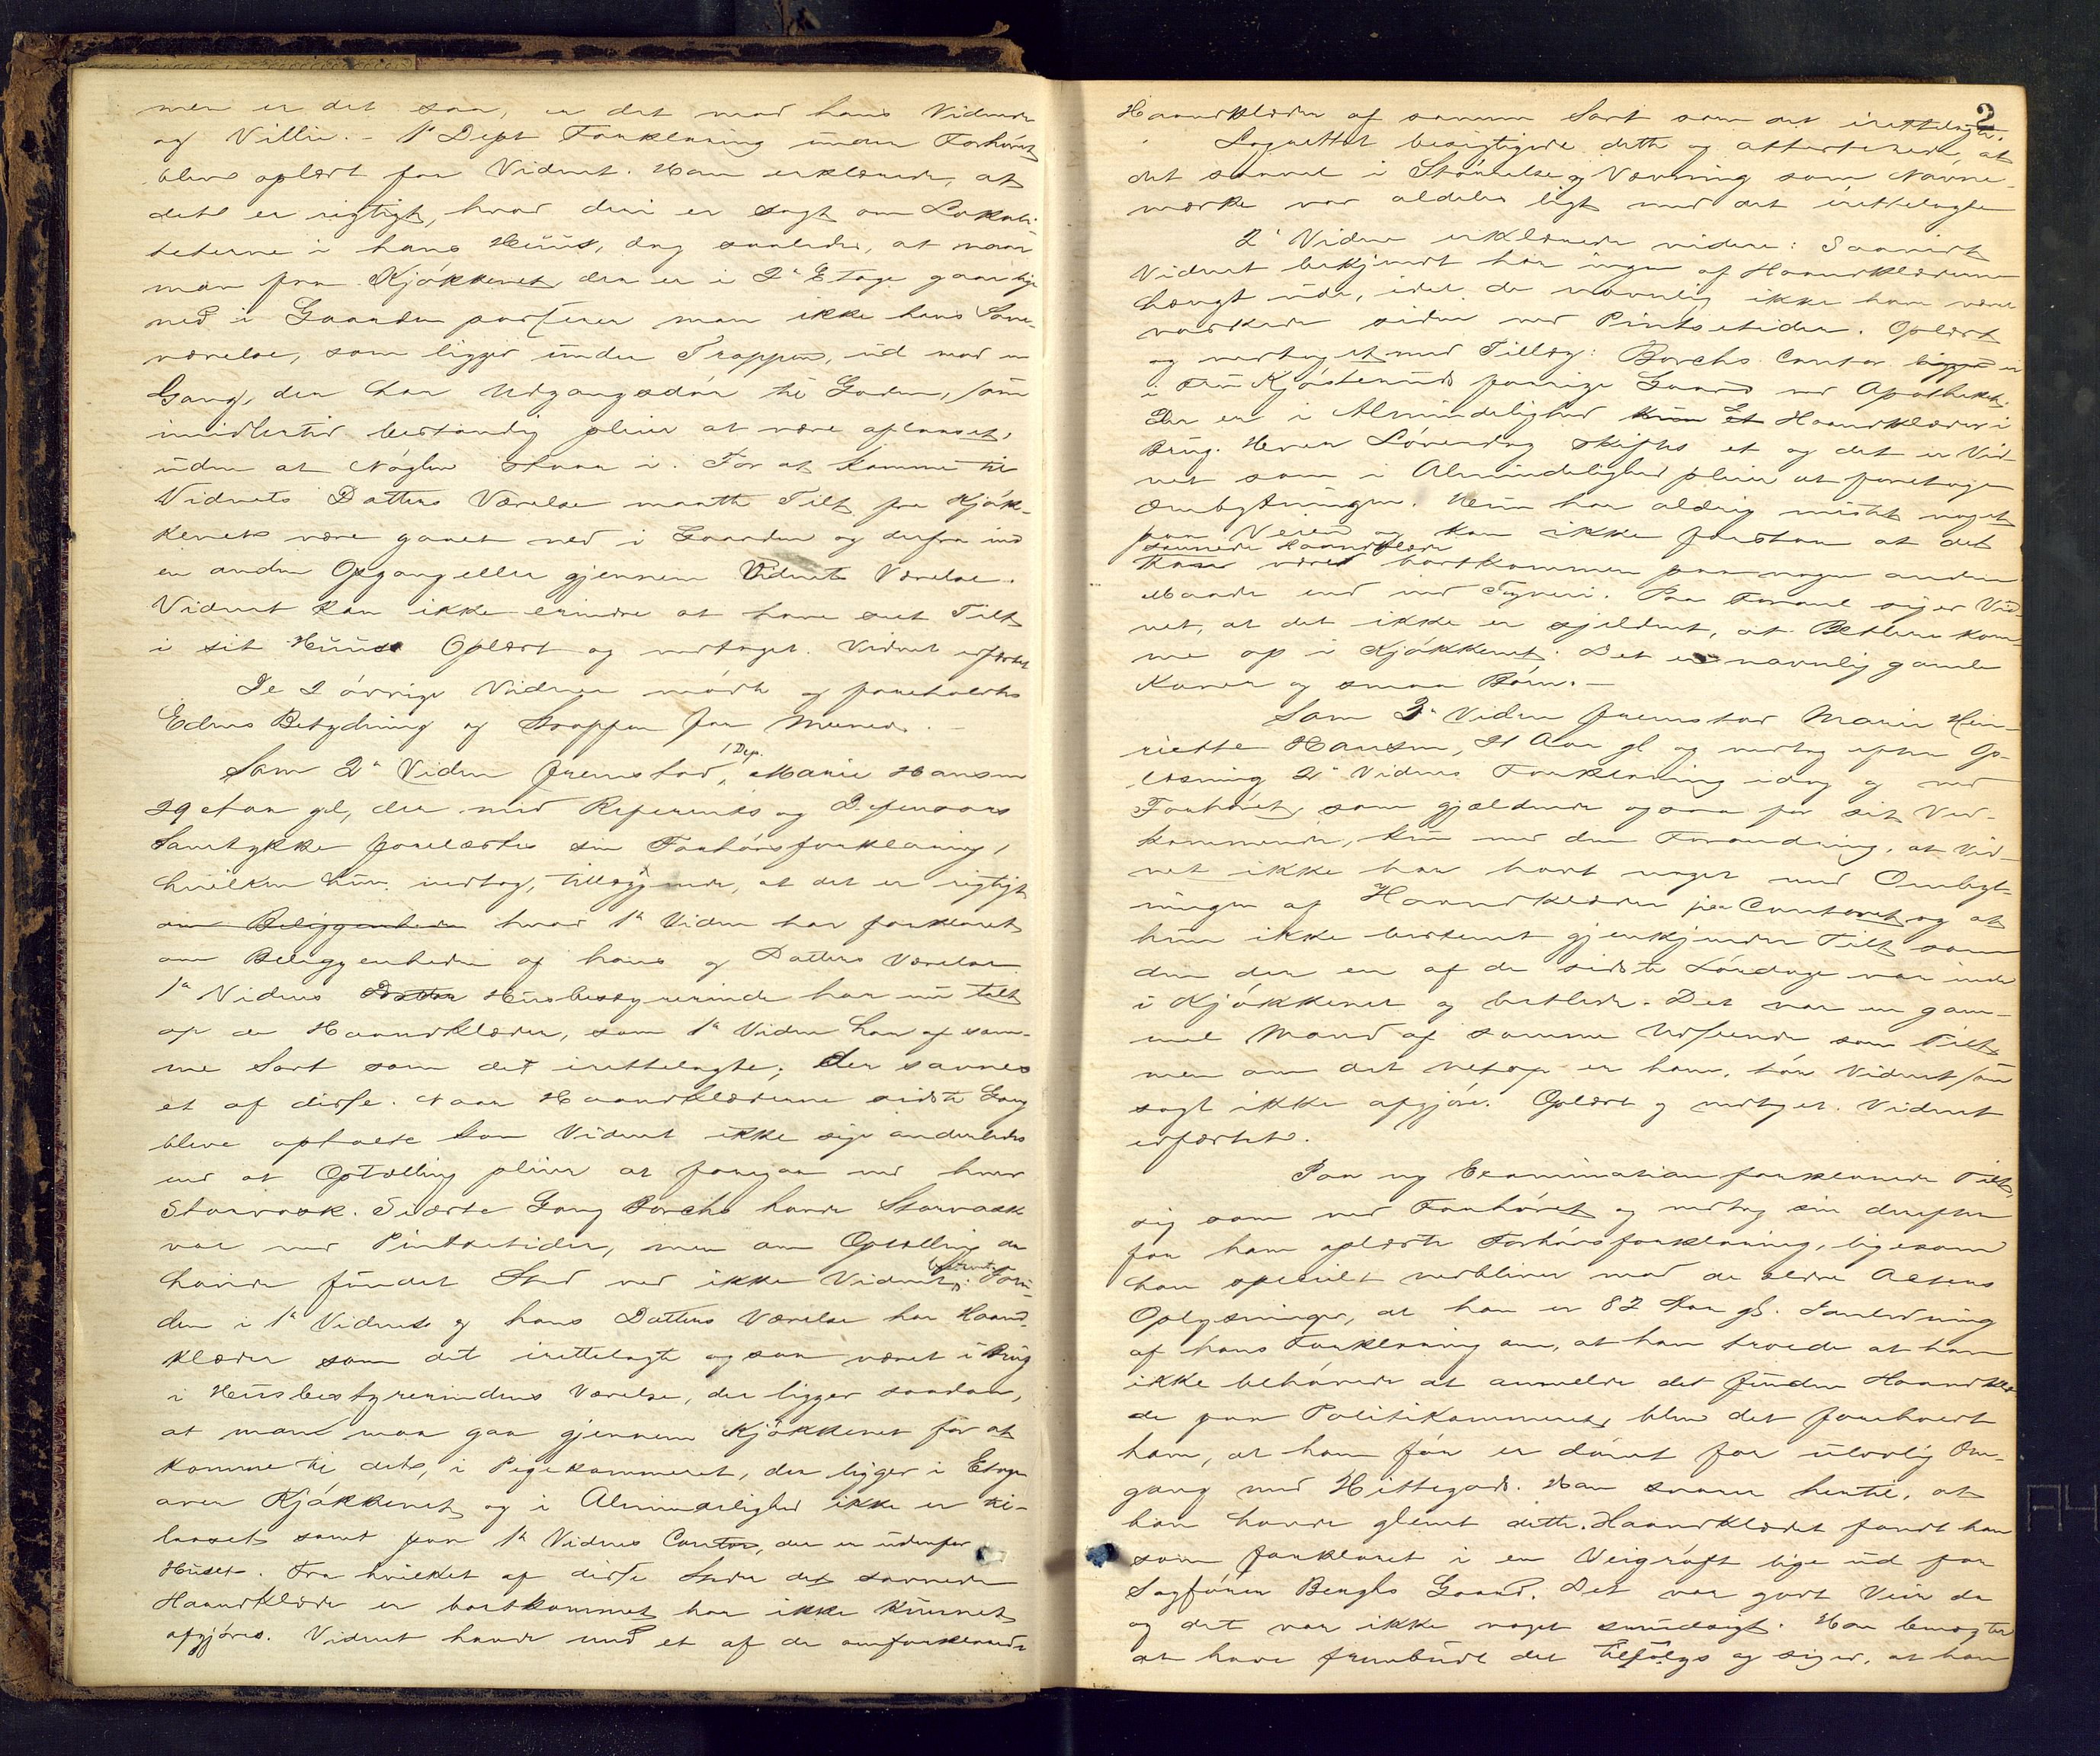 men er det saa, er det mod hans Vidende
og Villie. – 1ste Dept Forklaring under Forhøret
blev oplæst for Vidnet. Han erklærede, at
det er rigtigt, hvad deri er sagt om Lokali-
teterne i hans Huus, dog saaledes, at naar
man fra Kjøkkenet, der er i 2den Etage gaar lige
ned i Gaarden passerer man ikke hans Sove-
værelse, som ligger under Trappen, ud mod en
Gang, der har Udgangsdør til Gaden, som
imidlertid bestandig pleier at være aflaaset,
uden at Nøglen staar i. For at komme til
Vidnets Datters Værelse maatte Tilt. fra Kjøk-
kenet være gaaet ned i Gaarden og derfra ind
en anden Opgang eller gjennem Vidnets Værelse.
Vidnet kan ikke erindre at have seet Tilt.
i sit Huus. Oplæst og vedtaget. Vidnet
De 2 øvrige Vidner mødte og foreholdtes
Edens Betydning og Straffen for Meened. –
Som 2det Vidne fremstod, 1 Dep. Marie Hansen
29 Aar gl, der med Referents og Defensors
Samtykke forelæstes sin Forhørsforklaring,
hvilken hun vedtog, tillæggende, at det er rigtigt
om Beliggenheden hvad 1ste Vidne har forklaret
om Beliggenheden af hans og Datters Værelse.
1ste Vidnes Datter Huusbestyrerinde har nu talt
op de Haandklæder, som 1ste Vidne har af sam-
me Sort som det irettelagte; der savnes
et af disse. Naar Haandklæderne sidste Gang
bleve optalte kan Vidnet ikke sige anderledes
end at Optælling pleier at foregaa ved hver
Storvask. Sidste Gang Borchs havde Storvask
var ved Pintsetider, men om Optælling da
havde fundet Sted ved ikke Vidnet bestemt. Foru-
den i 1ste Vidnes og hans Datters Værelse har Haand-
klæder som det irettelagte ogsaa været i Brug
i Huusbestyrerindens Værelse, der ligger saadan,
at man maa gaa gjennem Kjøkkenet for at
komme til det, i Pigekammeret, der ligger i Etagen
over Kjøkkenet og i Almindelighed ikke er til-
laaset samt paa 1ste Vidnes Contor, der er udenfor
Huset. Fra hvilket af disse Steder det savnede
Haandklæde er bortkommet har ikke kunnet
afgjøres. Vidnet havde med et af de omforklarede
2
Haandklæder af samme Sort som det irettelagte.
Lagrettet besigtigede dette og attesterede, at
det saavel i Størrelse og Vævning som Navne-
mærke var aldeles ligt med det irettelagte
2det Vidne erklærede videre: Saavidt
Vidnet bekjendt har ingen af Haandklæderne
hængt ude, idet de navnlig ikke have været
vaskede siden ved Pintsetider. Oplæst
og vedtaget med Tillæg: Borchs Contor ligger er
i Kjøsteruds forrige Gaard ved Apotheket.
Der er i Almindelighed kun et 2 Haandklæder i
Brug. Hver Løverdag skiftes et og det er Vid-
net som i Almindelighed pleier at foretage
Ombytningen. Hun har aldrig mistet noget
paa Veien og kan ikke forstaa at det
savnede Haandklæde
kan være bortkommen paa nogen anden
Maade end ved Tyveri. Paa Foranl. siger Vid-
net, at det ikke er sjeldent, at Betlere kom-
me op i Kjøkkenet. Det er navnlig gamle
Koner og smaa Børn. –
Som 3die Vidne fremstod Marie Hen-
riette Hansen, 21 Aar gl og vedtog efter Op-
læsning 2det Vidnes Forklaring idag og ved
Forhøret, som gjældende ogsaa for sit Ved-
kommende, kun med den Forandring, at Vid-
net ikke har havt noget med Ombyt-
ningen af Haandklæder paa Contoret og at
hun ikke bestemt gjenkjender Tilt. som
den der en af de sidste Lørdage var inde
i Kjøkkenet og betlede. Det var en gam-
mel Mand af samme Udseende som Tilt.
men om det netop er ham, tør Vidnet som
sagt ikke afgjøre. Oplæst og vedtaget. Vidnet

Paa ny Examination forklarede Tilt.
sig som ved Forhøret og vedtog sin derefter
for ham oplæste Forhørsforklaring, ligesom
han specielt vedbliver mod de ældre Acters
Oplysninger, at han er 82 Aar gl. I Anledning
af hans Forklaring om, at han troede at han
ikke behøvede at anmelde det fundne Haandklæ-
de paa Politikammeret, blev det foreholdt
ham, at han før er dømt for ulovlig Om-
gang med Hittegods. Han svarer hertil, at
han havde glemt dette. Haandklædet fandt han
som forklaret i en Veigrøft lige ud for
Sagfører Benghs Gaard. Det var godt Veir da
og det var ikke noget smudsigt. Han benegter
at have frembudt det tilfalgs og siger, at han